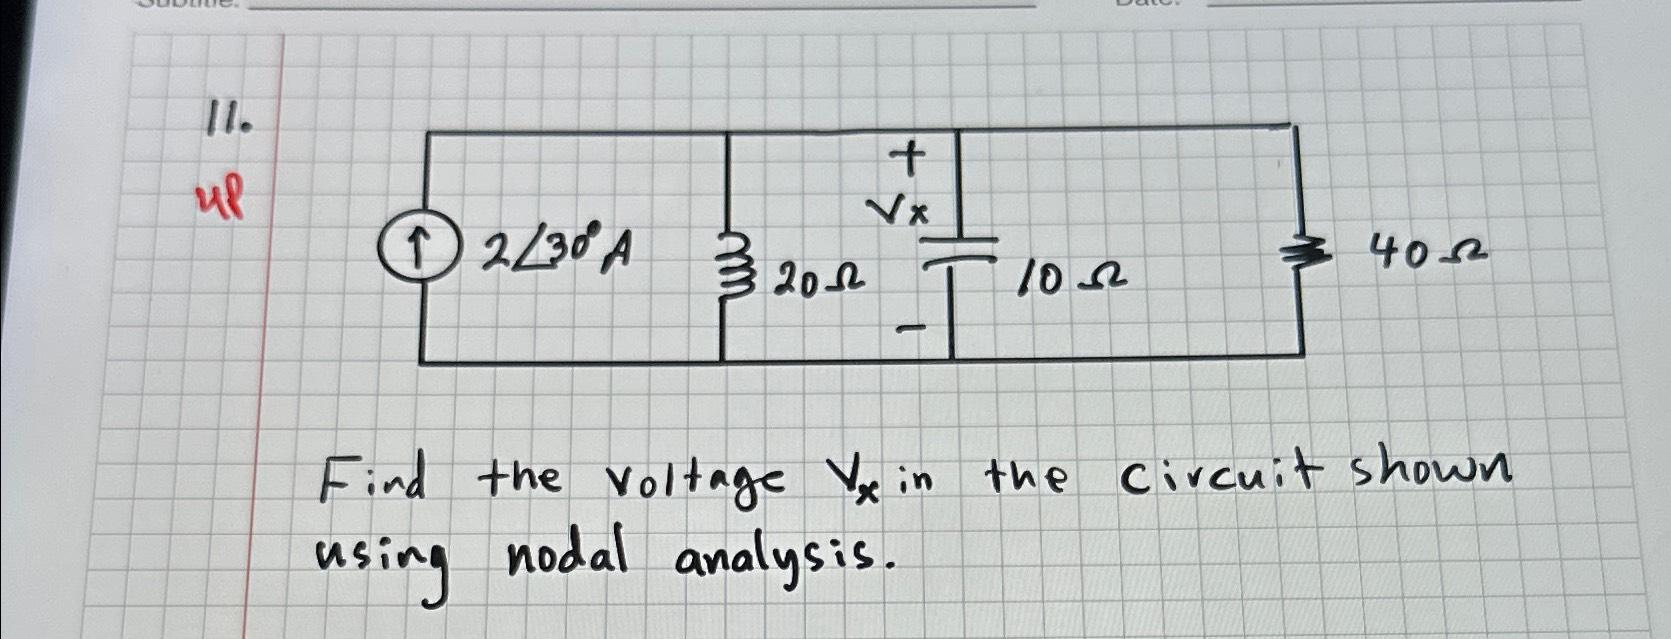 11.
4P
2∠30° A
20Ω
+
Vx
-
10 Ω
40 Ω
Find the voltage Vx in the circuit shown
using nodal analysis.